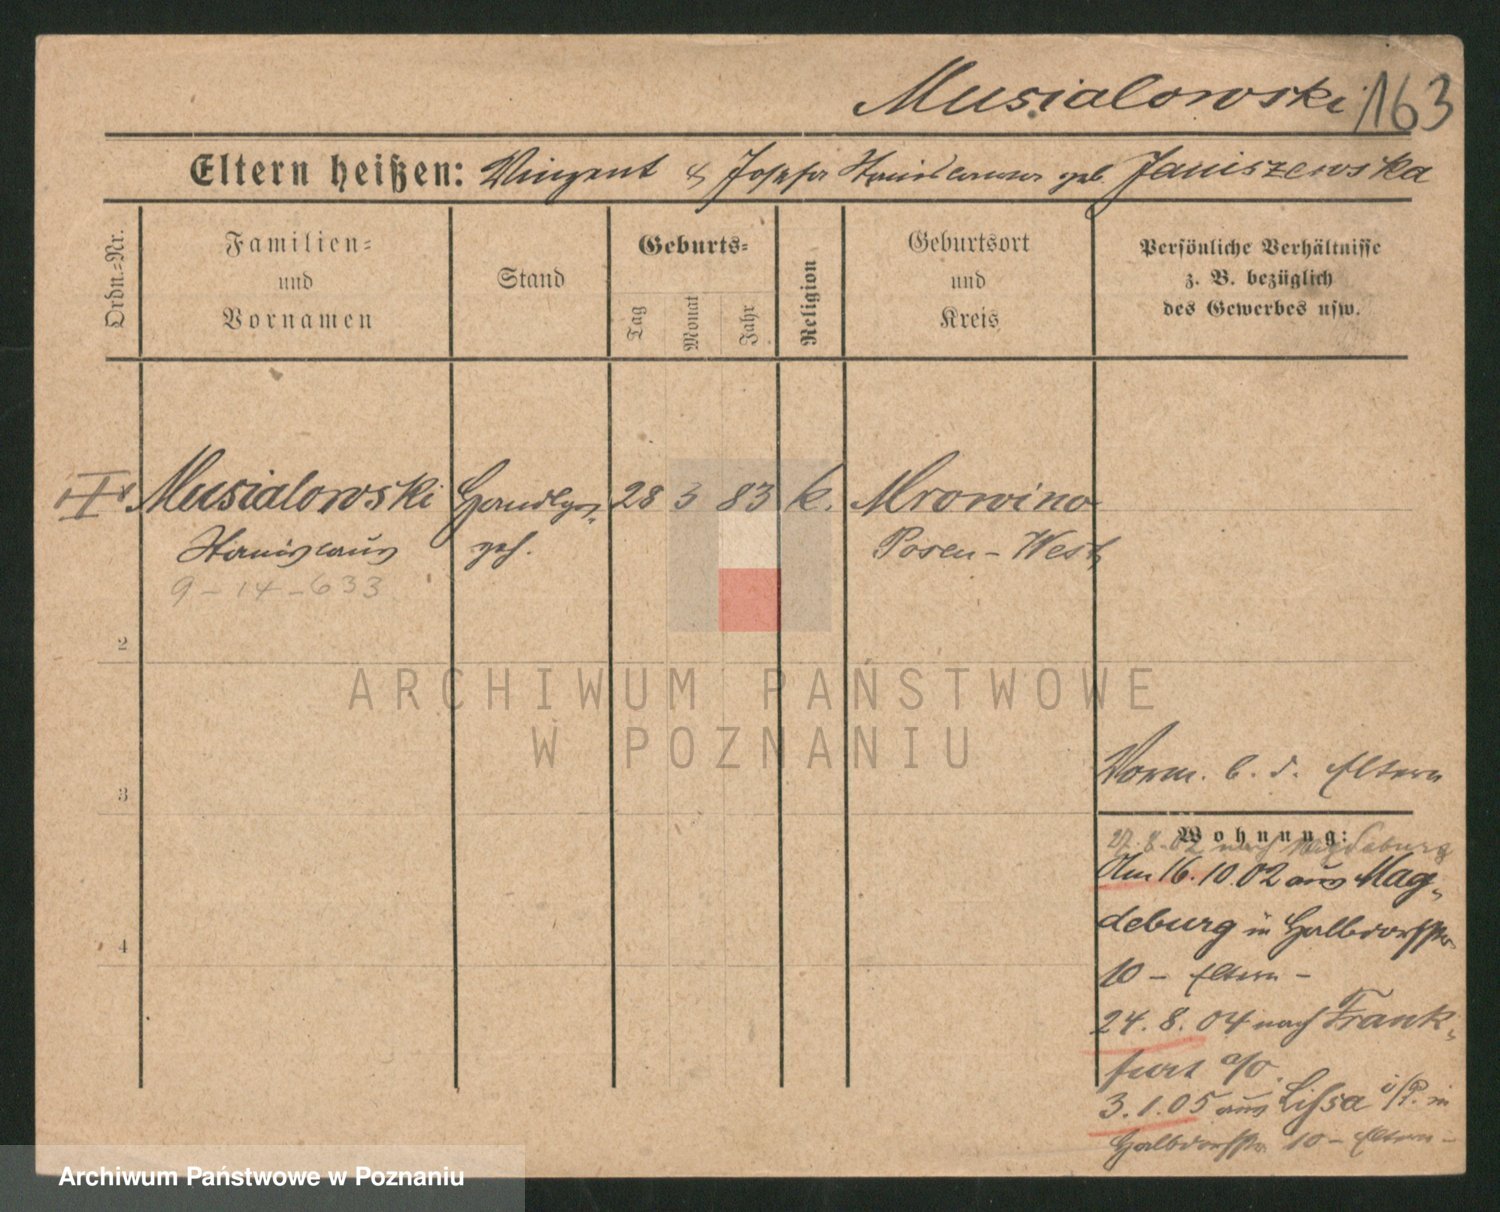 Musialowski 163
Eltern heißen: Vinzent & Josefa Stanislawa geb. Janiszewska
Ordn.-Nr.
Familien-
und
Vornamen
Stand
Geburts-
Tag
Monat
Jahr
Religion
Geburtsort
und
Kreis
Persönliche Verhältnisse
z. B. bezüglich
des Gewerbes usw.
Musialowski Handlgs- 28 3 83 k. Mrowino
Stanislaus geh. Posen-West
9-14-633
2
ARCHIWUM PAŃSTWOWE
W POZNANIU
Vorm. b. d. Eltern
3
Wohnung:
27.8.02 nach Magdeburg
Am 16.10.02 aus Mag-
deburg in Halbdorfstr
4
10 - Eltern -
24.8.04 nach Frank-
furt a/O.
3.1.05 aus Lissa i/P. in
Halbdorfstr 10 - Eltern -
Archiwum Państwowe w Poznaniu